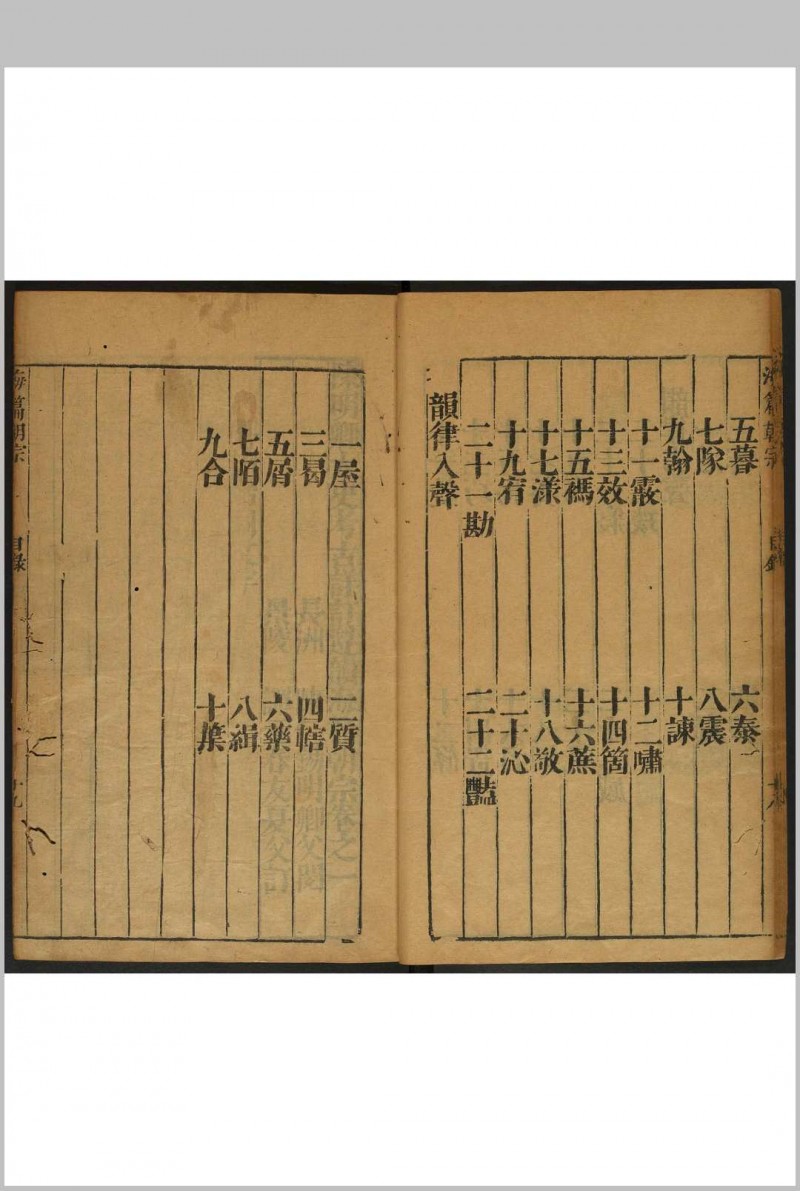 五暮 六泰
七隊 八震
九翰 十諫
十一霰 十二嘯
十三效 十四箇
十五禡 十六蔗
十七漾 十八敬
十九宥 二十沁
二十一勘 二十二豔
韻律入聲
一屋 二質
三曷 四轄
五屑 六藥
七陌 八緝
九合 十葉
海篇朝宗 目錄